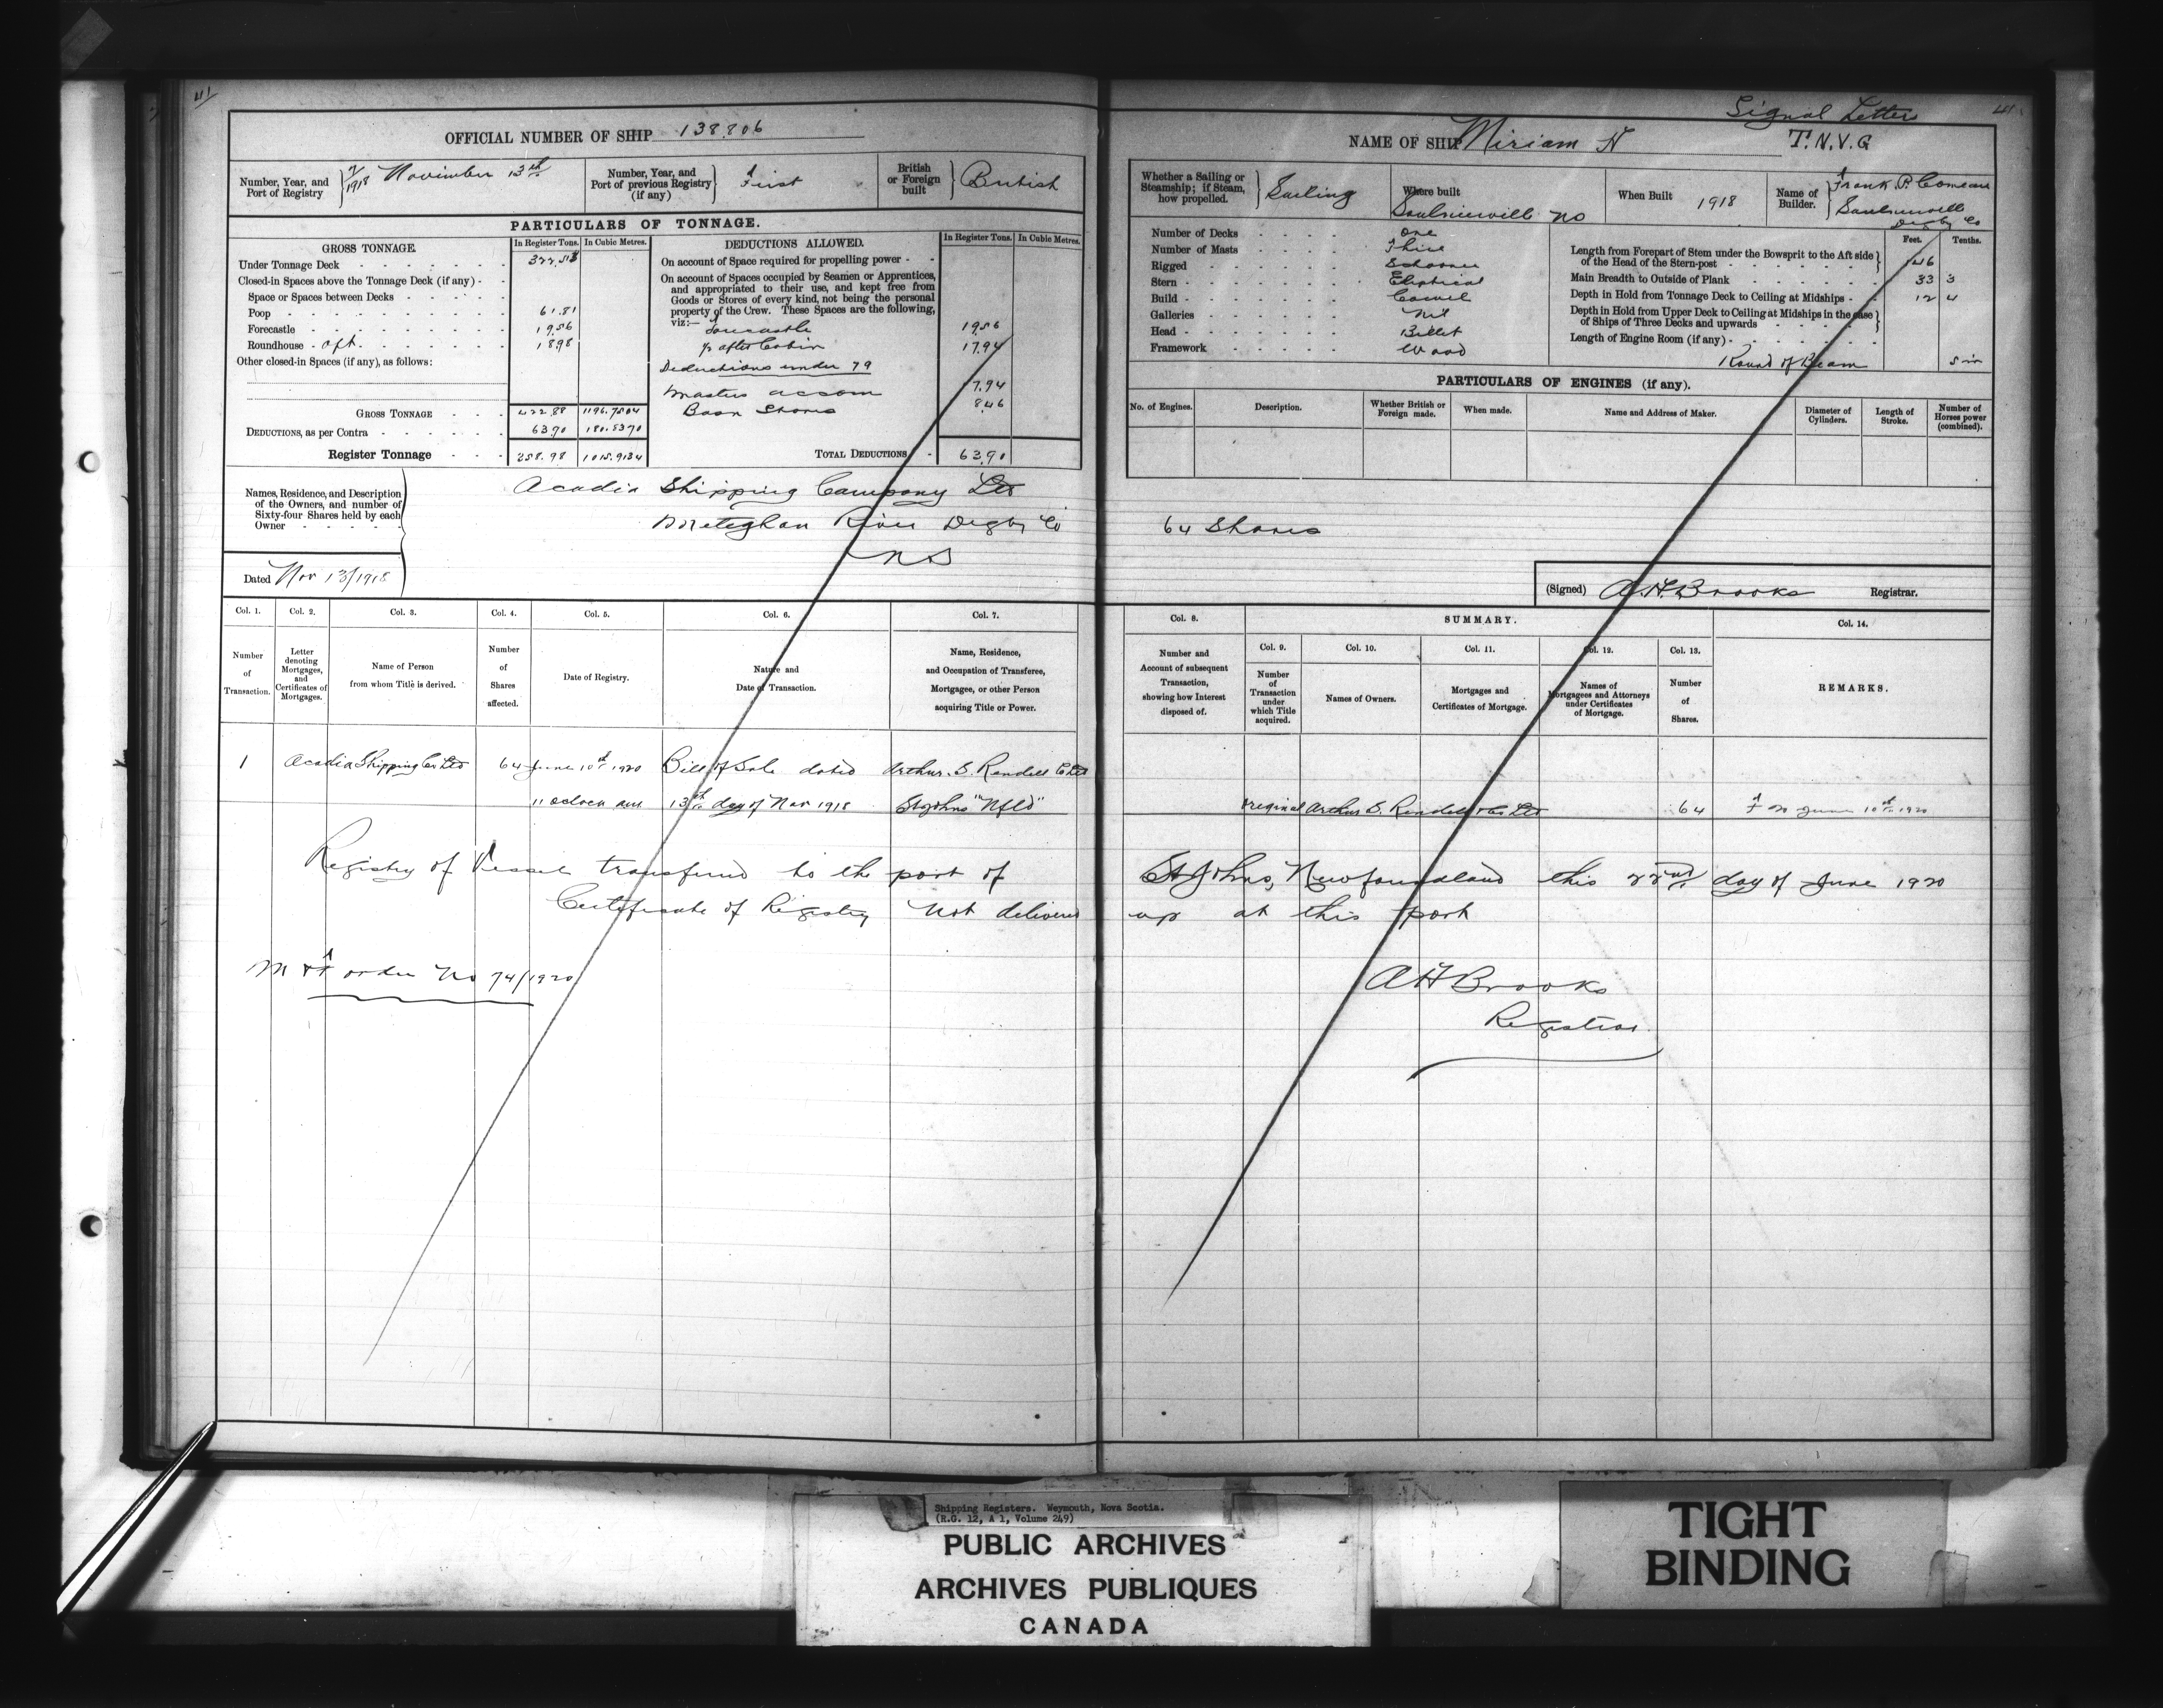 41
OFFICIAL NUMBER OF SHIP 138.806
Number, Year, and Port of Registry 1918 November 13th
Number, Year, and Port of previous Registry (if any) First
British or Foreign built British
PARTICULARS OF TONNAGE.
GROSS TONNAGE. In Register Tons. In Cubic Metres.
Under Tonnage Deck 322.53
Closed-in Spaces above the Tonnage Deck (if any)
Space or Spaces between Decks
Poop 61.81
Forecastle 19.56
Roundhouse aft. 18.98
Other closed-in Spaces (if any), as follows:
GROSS TONNAGE 422.88 1196.7504
DEDUCTIONS, as per Contra 63.90 180.8370
Register Tonnage 358.98 1015.9134
DEDUCTIONS ALLOWED. In Register Tons. In Cubic Metres.
On account of Space required for propelling power
On account of Spaces occupied by Seamen or Apprentices, and appropriated to their use, and kept free from Goods or Stores of every kind, not being the personal property of the Crew. These Spaces are the following, viz:—
Forecastle 19.56
after Cabin 17.94
Deductions under 79
Masters accom 17.94
Bosn Stores 8.46
TOTAL DEDUCTIONS 63.90
Names, Residence, and Description of the Owners, and number of Sixty-four Shares held by each Owner
Acadia Shipping Company Ltd
Meteghan River Digby Co
NS
Dated Nov 13/1918
Col. 1. Col. 2. Col. 3. Col. 4. Col. 5. Col. 6. Col. 7.
Number of Transaction.
Letter denoting Mortgages, and Certificates of Mortgages.
Name of Person from whom Title is derived.
Number of Shares affected.
Date of Registry.
Nature and Date of Transaction.
Name, Residence, and Occupation of Transferee, Mortgagee, or other Person acquiring Title or Power.
1 Acadia Shipping Co Ltd 64 June 10th 1920 Bill of Sale dated Arthur. S. Rendell Co Ltd
11 oclock am 13th day of Nov 1918 St Johns "Nfld"
Registry of Vessel transferred to the port of
Certificate of Registry Not delivered
order No 74/1920
Signal Letters
41
NAME OF SHIP Miriam N T.N.V.G
Whether a Sailing or Steamship; if Steam, how propelled. Sailing
Where built Saulnierville NS
When Built 1918
Name of Builder. Frank P. Comeau Saulnierville Digby Co
Number of Decks One
Number of Masts Three
Rigged Schooner
Stern Eliptical
Build Carvel
Galleries Nil
Head Billet
Framework Wood
Feet. Tenths.
Length from Forepart of Stem under the Bowsprit to the Aft side of the Head of the Stern-post 146
Main Breadth to Outside of Plank 33 3
Depth in Hold from Tonnage Deck to Ceiling at Midships 12 4
Depth in Hold from Upper Deck to Ceiling at Midships in the case of Ships of Three Decks and upwards
Length of Engine Room (if any)
Round of Beam 5 in
PARTICULARS OF ENGINES (if any).
No. of Engines. Description. Whether British or Foreign made. When made. Name and Address of Maker. Diameter of Cylinders. Length of Stroke. Number of Horses power (combined).
64 Shares
(Signed) A.H. Brooks Registrar.
Col. 8. SUMMARY. Col. 14.
Number and Account of subsequent Transaction, showing how Interest disposed of.
Col. 9. Col. 10. Col. 11. Col. 12. Col. 13.
Number of Transaction under which Title acquired.
Names of Owners.
Mortgages and Certificates of Mortgage.
Names of Mortgagees and Attorneys under Certificates of Mortgage.
Number of Shares.
REMARKS.
Original Arthur S. Rendell & Co Ltd 64 June 10th 1920
St Johns, Newfoundland this 22nd day of June 1920
up at this port
A H Brooks
Registrar
Shipping Registers. Weymouth, Nova Scotia.
(R.G. 12, A 1, Volume 249)
PUBLIC ARCHIVES
ARCHIVES PUBLIQUES
CANADA
TIGHT
BINDING